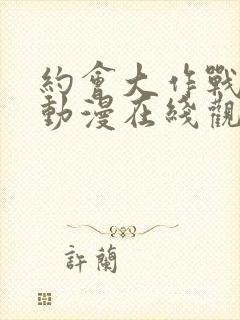 約會大作戰
動漫在綫觀
許蘭